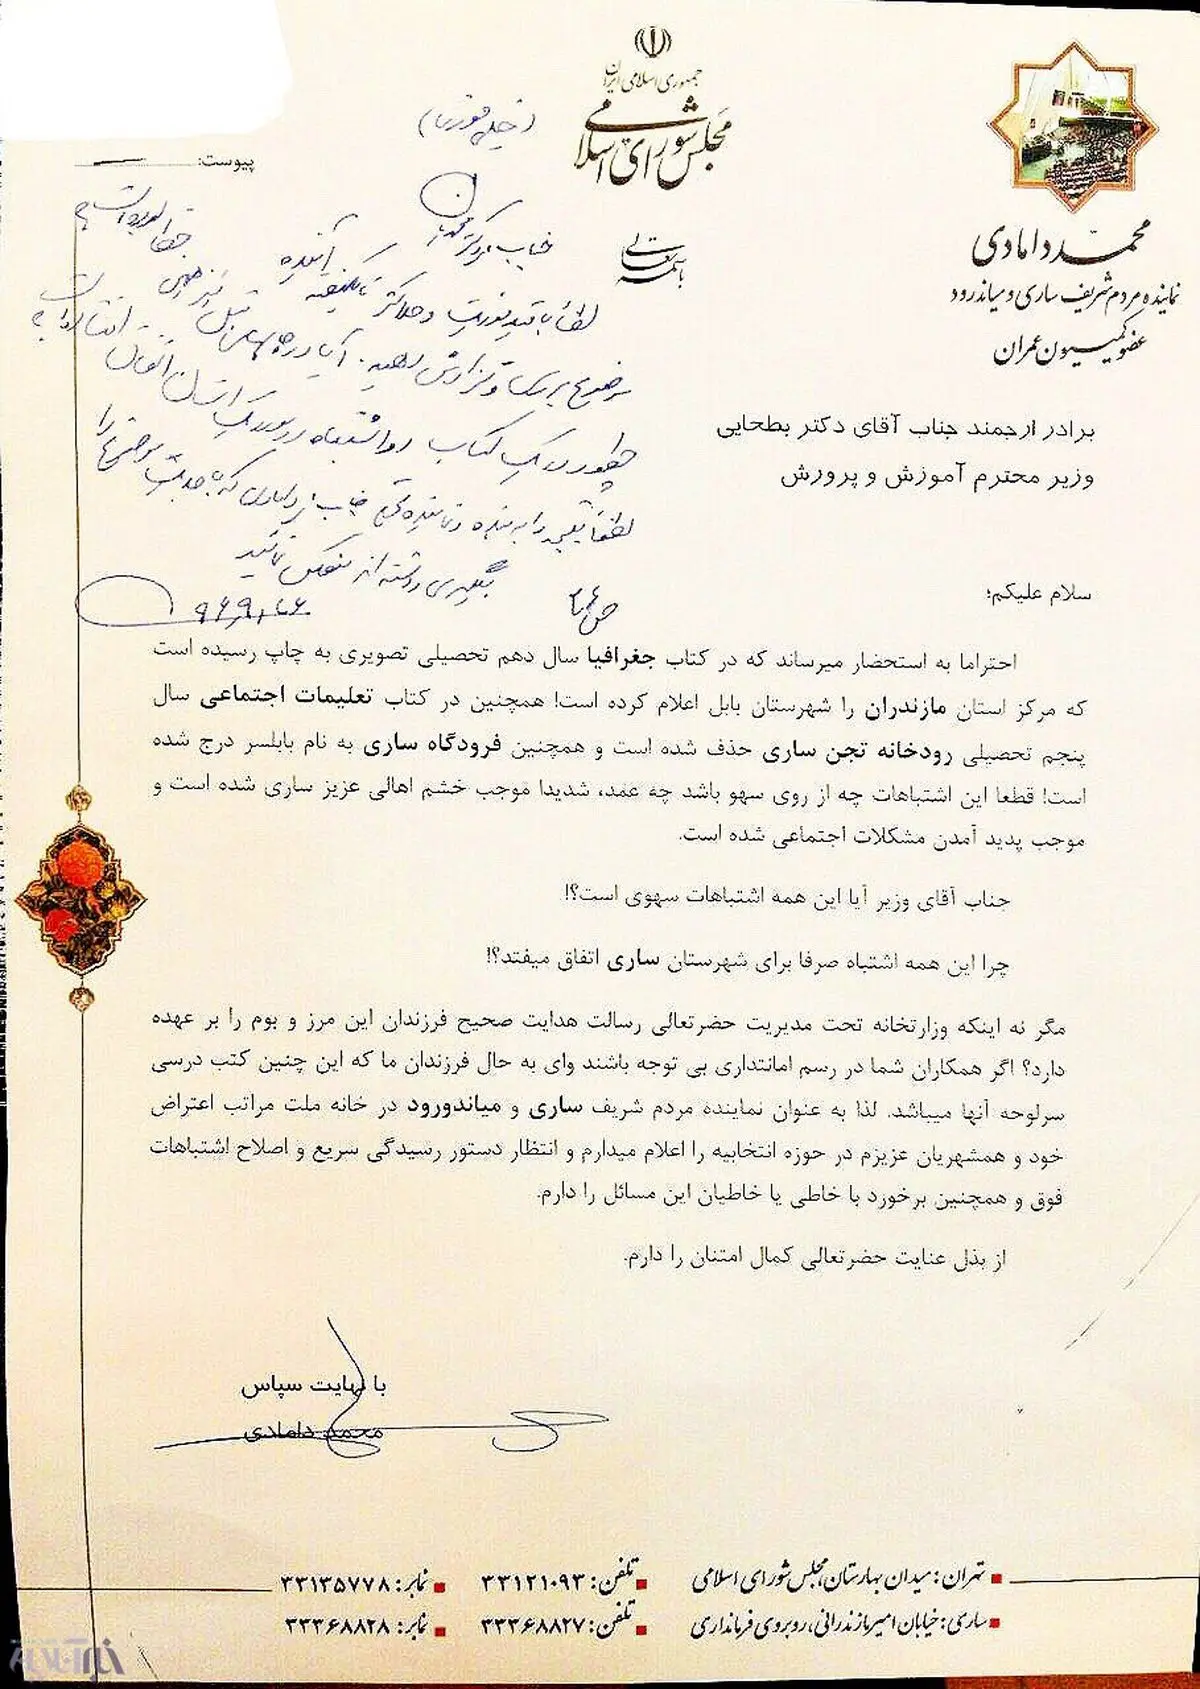 جمهوری اسلامی ایران
مجلس شورای اسلامی
(خیلی فوری)
پیوست:
باسمه تعالی
محمد دامادی
نماینده مردم شریف ساری و میاندرود
عضو کمیسیون عمران
جناب دکتر
لطفا با قید فوریت و حداکثر تا یکهفته آینده
موضوع بررسی و گزارش دهید. آیا در
چطور در یک کتاب دو اشتباه در مورد یک استان اتفاق
لطفا نتیجه را به بنده و نماینده محترم جناب دامادی که با جدیت موضوع را
پیگیری داشته‌اند منعکس نمائید
۹۶/۹/۲۶
برادر ارجمند جناب آقای دکتر بطحایی
وزیر محترم آموزش و پرورش
سلام علیکم؛
احتراما به استحضار میرساند که در کتاب جغرافیا سال دهم تحصیلی تصویری به چاپ رسیده است
که مرکز استان مازندران را شهرستان بابل اعلام کرده است! همچنین در کتاب تعلیمات اجتماعی سال
پنجم تحصیلی رودخانه تجن ساری حذف شده است و همچنین فرودگاه ساری به نام بابلسر درج شده
است! قطعا این اشتباهات چه از روی سهو باشد چه عمد، شدیدا موجب خشم اهالی عزیز ساری شده است و
موجب پدید آمدن مشکلات اجتماعی شده است.
جناب آقای وزیر آیا این همه اشتباهات سهوی است؟!
چرا این همه اشتباه صرفا برای شهرستان ساری اتفاق میفتد؟!
مگر نه اینکه وزارتخانه تحت مدیریت حضرتعالی رسالت هدایت صحیح فرزندان این مرز و بوم را بر عهده
دارد؟ اگر همکاران شما در رسم امانتداری بی توجه باشند وای به حال فرزندان ما که این چنین کتب درسی
سرلوحه آنها میباشد. لذا به عنوان نماینده مردم شریف ساری و میاندورود در خانه ملت مراتب اعتراض
خود و همشهریان عزیزم در حوزه انتخابیه را اعلام میدارم و انتظار دستور رسیدگی سریع و اصلاح اشتباهات
فوق و همچنین برخورد با خاطی یا خاطیان این مسائل را دارم.
از بذل عنایت حضرتعالی کمال امتنان را دارم.
با نهایت سپاس
محمد دامادی
تهران: میدان بهارستان، مجلس شورای اسلامی تلفن: ۳۳۱۲۱۰۹۳ نمابر: ۳۳۱۳۵۷۷۸
ساری: خیابان امیرمازندرانی، روبروی فرمانداری تلفن: ۳۳۳۶۸۸۲۷ نمابر: ۳۳۳۶۸۸۲۸
خبرآنلاین